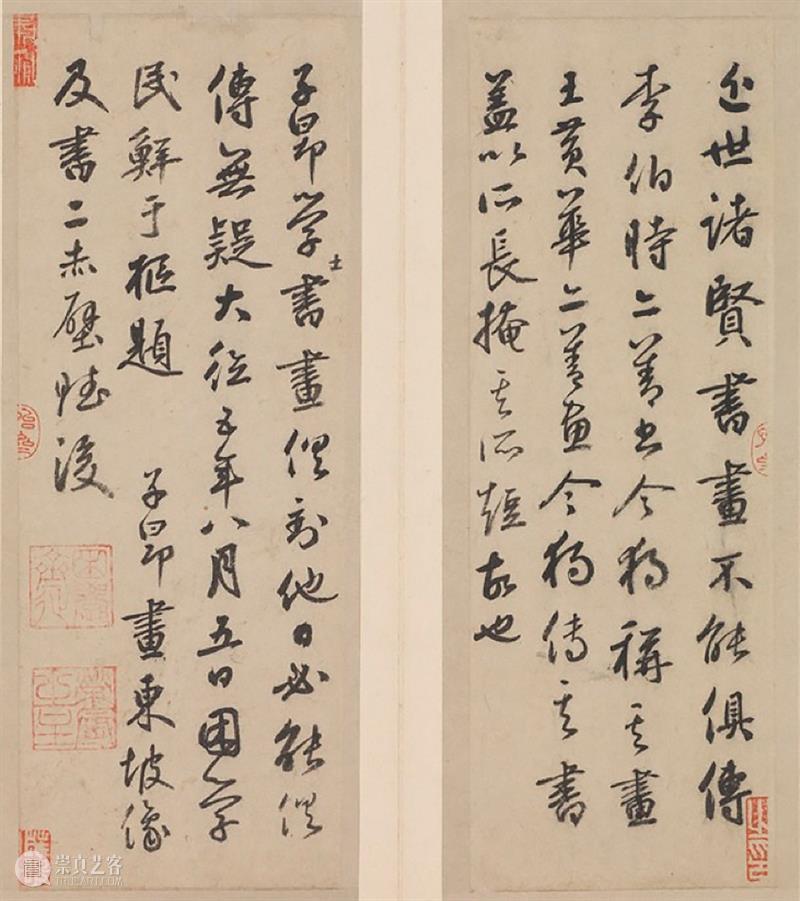 近世諸賢書畫不能俱傳
李伯時亦善書今獨稱其畫
王黃華亦善畫今獨傳其書
蓋以所長掩其所短故也
子昂學士書畫俱到他日必能俱
傳無疑大德五年八月五日困學
民鮮于樞題 子昂畫東坡像
及書二赤壁賦後
崇真艺客